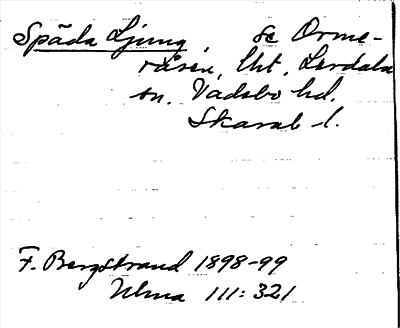 Späda Ljung, se Orme-
råsen, Ut, Lerdala
sn. Vadsbo hd.
Skarab l.
F. Bergstrand 1898-99
Ulma 111:321